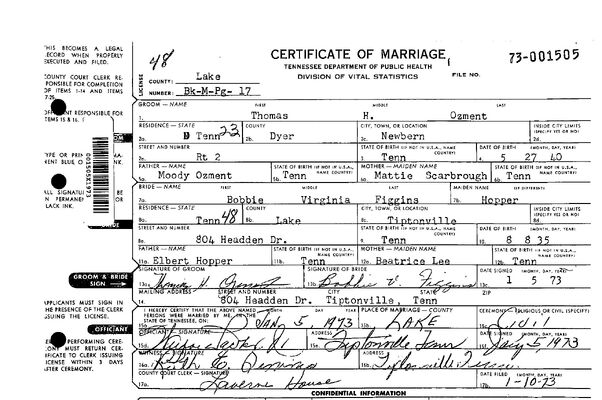 THIS BECOMES A LEGAL
RECORD WHEN PROPERLY
EXECUTED AND FILED.
COUNTY COURT CLERK RE-
SPONSIBLE FOR COMPLETION
OF ITEMS 1-14 AND ITEMS
RESPONSIBLE FOR
ITEMS 15 & 16.
TYPE OR PRIN
PERMANENT BLUE O INK
ALL SIGNATU BE
IN PERMANE OR
BLACK INK.
GROOM & BRIDE
SIGN
APPLICANTS MUST SIGN IN
THE PRESENCE OF THE CLERK
ISSUING THE LICENSE.
OFFICIANT
PERFORMING CERE-
MONY MUST RETURN CER-
TIFICATE TO CLERK ISSUING
LICENSE WITHIN 3 DAYS
AFTER CEREMONY.
001505X1973
48
CERTIFICATE OF MARRIAGE
73-001505
TENNESSEE DEPARTMENT OF PUBLIC HEALTH
DIVISION OF VITAL STATISTICS
FILE NO.
LICENSE
COUNTY: Lake
NUMBER: Bk-M-Pg- 17
GROOM — NAME FIRST MIDDLE LAST
1. Thomas H. Ozment
RESIDENCE — STATE COUNTY CITY, TOWN, OR LOCATION INSIDE CITY LIMITS (SPECIFY YES OR NO)
2a. Tenn 23 2b. Dyer 2c. Newbern 2d.
STREET AND NUMBER STATE OF BIRTH (IF NOT IN U.S.A., NAME COUNTRY) DATE OF BIRTH (MONTH, DAY, YEAR)
2e. Rt 2 3. Tenn 4. 5 27 40
FATHER — NAME STATE OF BIRTH (IF NOT IN U.S.A., NAME COUNTRY) MOTHER — MAIDEN NAME STATE OF BIRTH (IF NOT IN U.S.A., NAME COUNTRY)
5a. Moody Ozment 5b. Tenn 6a. Mattie Scarbrough 6b. Tenn
BRIDE — NAME FIRST MIDDLE LAST MAIDEN NAME IF DIFFERENT
7a. Bobbie Virginia Figgins 7b. Hopper
RESIDENCE — STATE COUNTY CITY, TOWN, OR LOCATION INSIDE CITY LIMITS (SPECIFY YES OR NO)
8a. Tenn 48 8b. Lake 8c. Tiptonville 8d.
STREET AND NUMBER STATE OF BIRTH (IF NOT IN U.S.A., NAME COUNTRY) DATE OF BIRTH (MONTH, DAY, YEAR)
8e. 804 Headden Dr. 9. Tenn 10. 8 8 35
FATHER — NAME STATE OF BIRTH (IF NOT IN U.S.A., NAME COUNTRY) MOTHER — MAIDEN NAME STATE OF BIRTH (IF NOT IN U.S.A., NAME COUNTRY)
11a. Elbert Hopper 11b. Tenn 12a. Beatrice Lee 12b. Tenn
SIGNATURE OF GROOM SIGNATURE OF BRIDE DATE SIGNED (MONTH, DAY, YEAR)
13a. Thomas H. Ozment 13b. Bobbie V. Figgins 13c. 1 5 73
MAILING ADDRESS STREET AND NUMBER CITY STATE ZIP
14. 804 Headden Dr. Tiptonville, Tenn
I HEREBY CERTIFY THAT THE ABOVE NAMED PERSONS WERE MARRIED BY ME ON THE STATE OF TENNESSEE, ON: (MONTH, DAY, YEAR) PLACE OF MARRIAGE — COUNTY CEREMONY (RELIGIOUS OR CIVIL (SPECIFY))
15a. JAN 5 1973 15b. LAKE 15c. Civil
OFFICIANT — SIGNATURE ADDRESS DATE SIGNED (MONTH, DAY, YEAR)
15d. 15e. Tiptonville Tenn 15f. Jan 5, 1973
WITNESS — SIGNATURE ADDRESS
16a. Ruth E. 16b. Tiptonville Tenn
COUNTY COURT CLERK — SIGNATURE
17a. Laverne House 17b. 1-10-73
CONFIDENTIAL INFORMATION